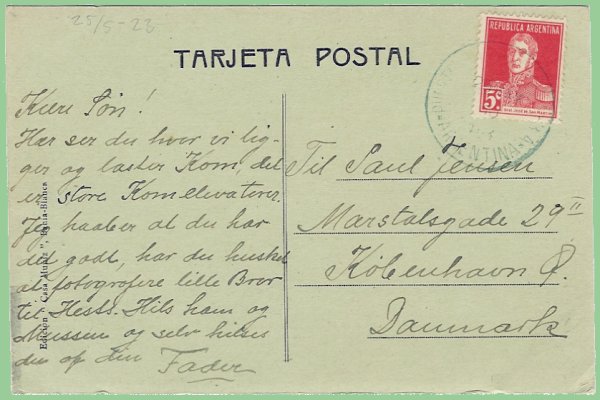 25/5-23
TARJETA POSTAL
REPUBLICA ARGENTINA
5c
GRAL. JOSÉ DE SAN MARTIN
ARGENTINA
Kære Søn!
Her ser du hvor vi lig-
ger og laster Korn, det
er store Kornelevatorer.
Jeg haaber at du har
det godt, har du husket
at fotografere lille Bror
til Hest. Hils ham og
og selv hilses
du af din Fader
Til Paul Jensen
Marstalsgade 29 II
København Ø.
Danmark
Edición "Casa Muñiz", Bahia-Blanca